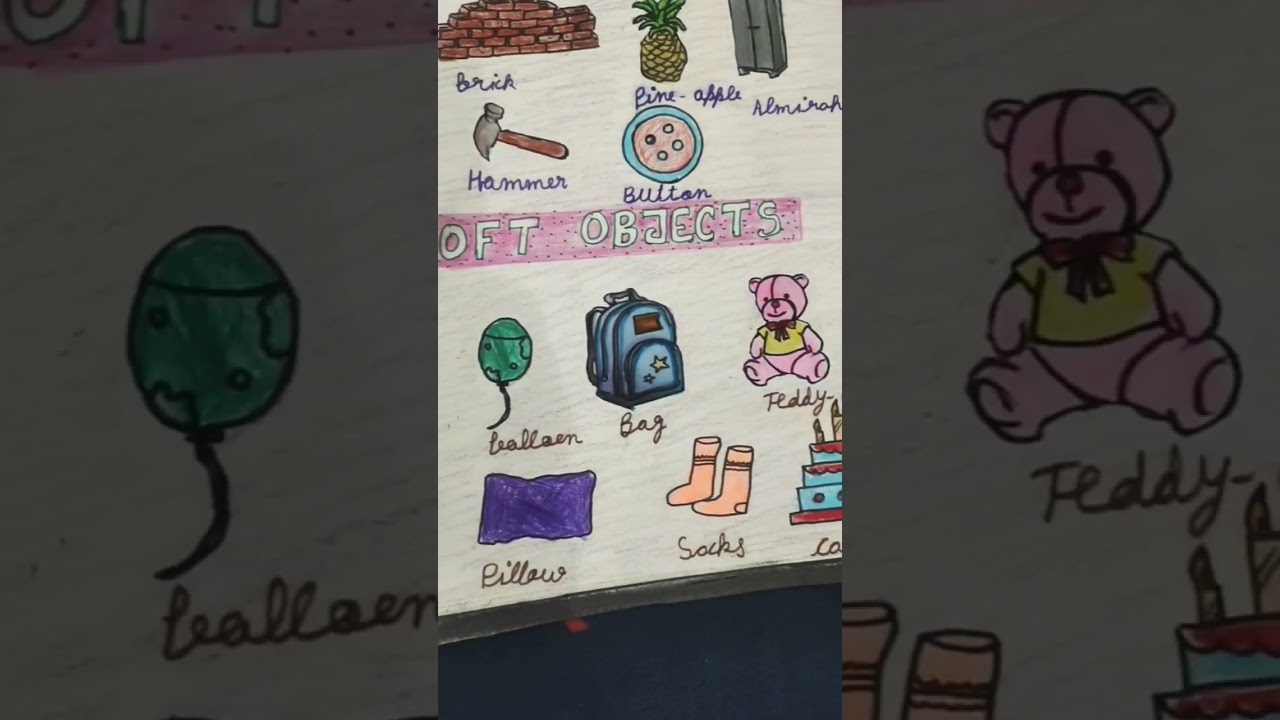 Brick
Pine-apple
Almirah
Hammer
Button
OFT OBJECTS
balloon
Bag
Teddy-
Pillow
Socks
ca